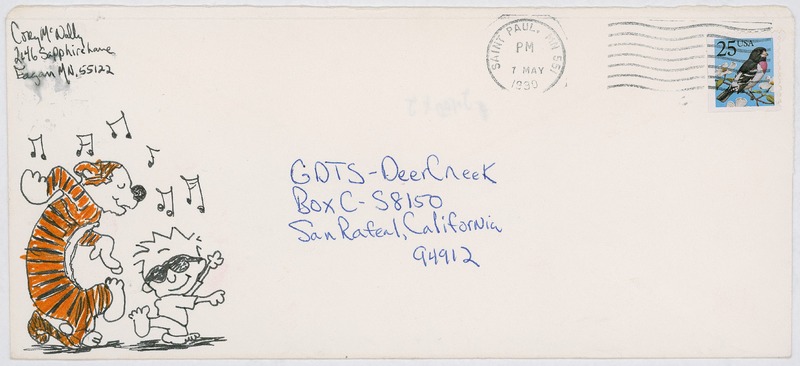 Cory McNally
2046 Sapphire Lane
Eagan MN, 55122
SAINT PAUL, MN 551
PM
7 MAY
1990
25 USA
GDTS-DeerCreek
Box C-S8150
San Rafeal, California
94912